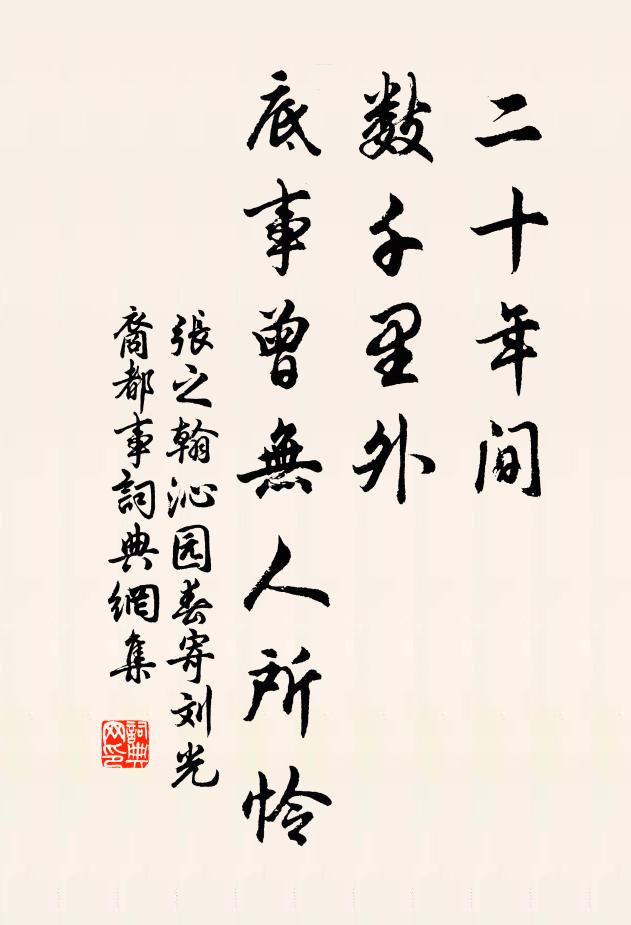 二十年间
数千里外
底事曾無人所怜
張之翰沁园春寄刘光
裔都事詞典網集
詞典
网印